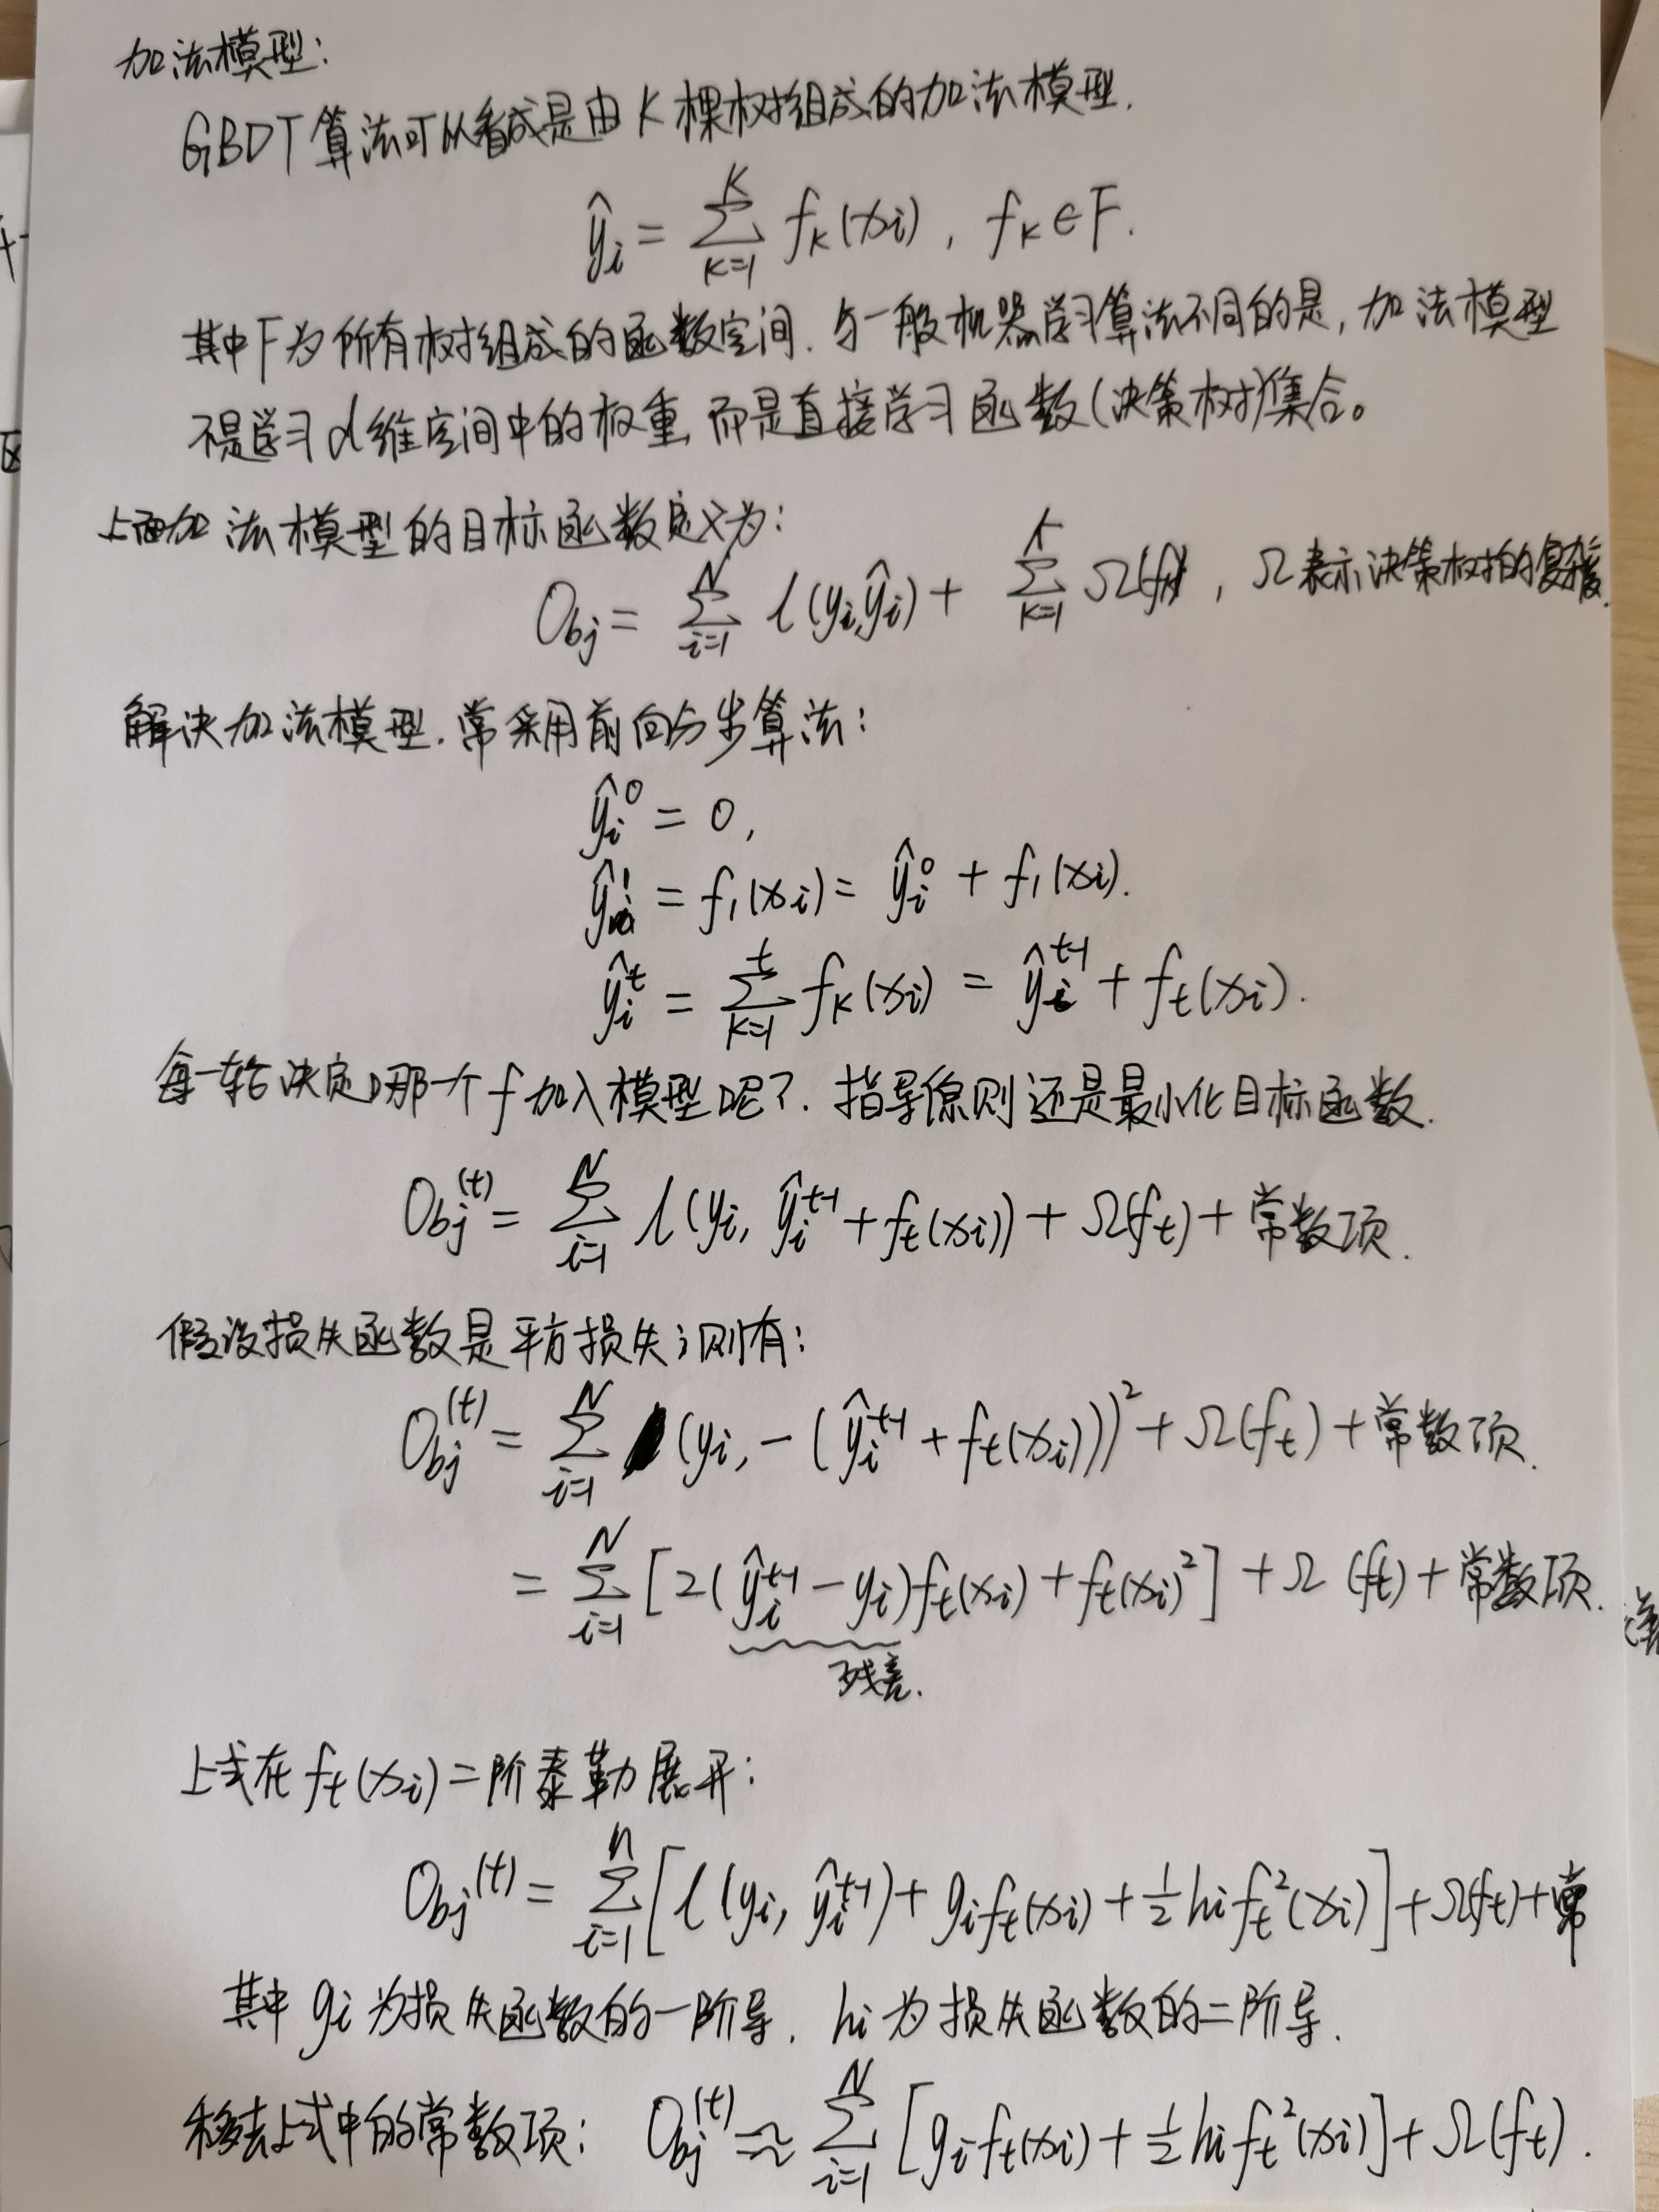 加法模型:
GBDT算法可以看成是由K棵树组成的加法模型.
ŷi = Σ_{k=1}^{K} fk(xi), fk∈F.
其中F为所有树组成的函数空间. 与一般机器学习算法不同的是, 加法模型
不是学习d维空间中的权重, 而是直接学习函数(决策树)集合。
上面加法模型的目标函数定义为:
Obj = Σ_{i=1}^{N} l(yi,ŷi) + Σ_{k=1}^{K} Ω(fk), Ω表示决策树的复杂度.
解决加法模型. 常采用前向分步算法:
ŷi^0 = 0,
ŷi^1 = f1(xi) = ŷi^0 + f1(xi).
ŷi^t = Σ_{k=1}^{t} fk(xi) = ŷi^{t-1} + ft(xi).
每一轮决定哪一个f加入模型呢?. 指导原则还是最小化目标函数.
Obj^(t) = Σ_{i=1}^{N} l(yi, ŷi^{t-1} + ft(xi)) + Ω(ft) + 常数项.
假设损失函数是平方损失, 则有:
Obj^(t) = Σ_{i=1}^{N} (yi, - (ŷi^{t-1} + ft(xi)))² + Ω(ft) + 常数项.
= Σ_{i=1}^{N} [2(ŷi^{t-1} - yi)ft(xi) + ft(xi)²] + Ω(ft) + 常数项.
残差.
上式在ft(xi)二阶泰勒展开:
Obj^(t) = Σ_{i=1}^{n} [l(yi, ŷi^{t-1}) + gift(xi) + ½hift²(xi)] + Ω(ft) + 常
其中gi为损失函数的一阶导, hi为损失函数的二阶导.
移去上式中的常数项: Obj^(t) ≈ Σ_{i=1}^{N} [gift(xi) + ½hift²(xi)] + Ω(ft).